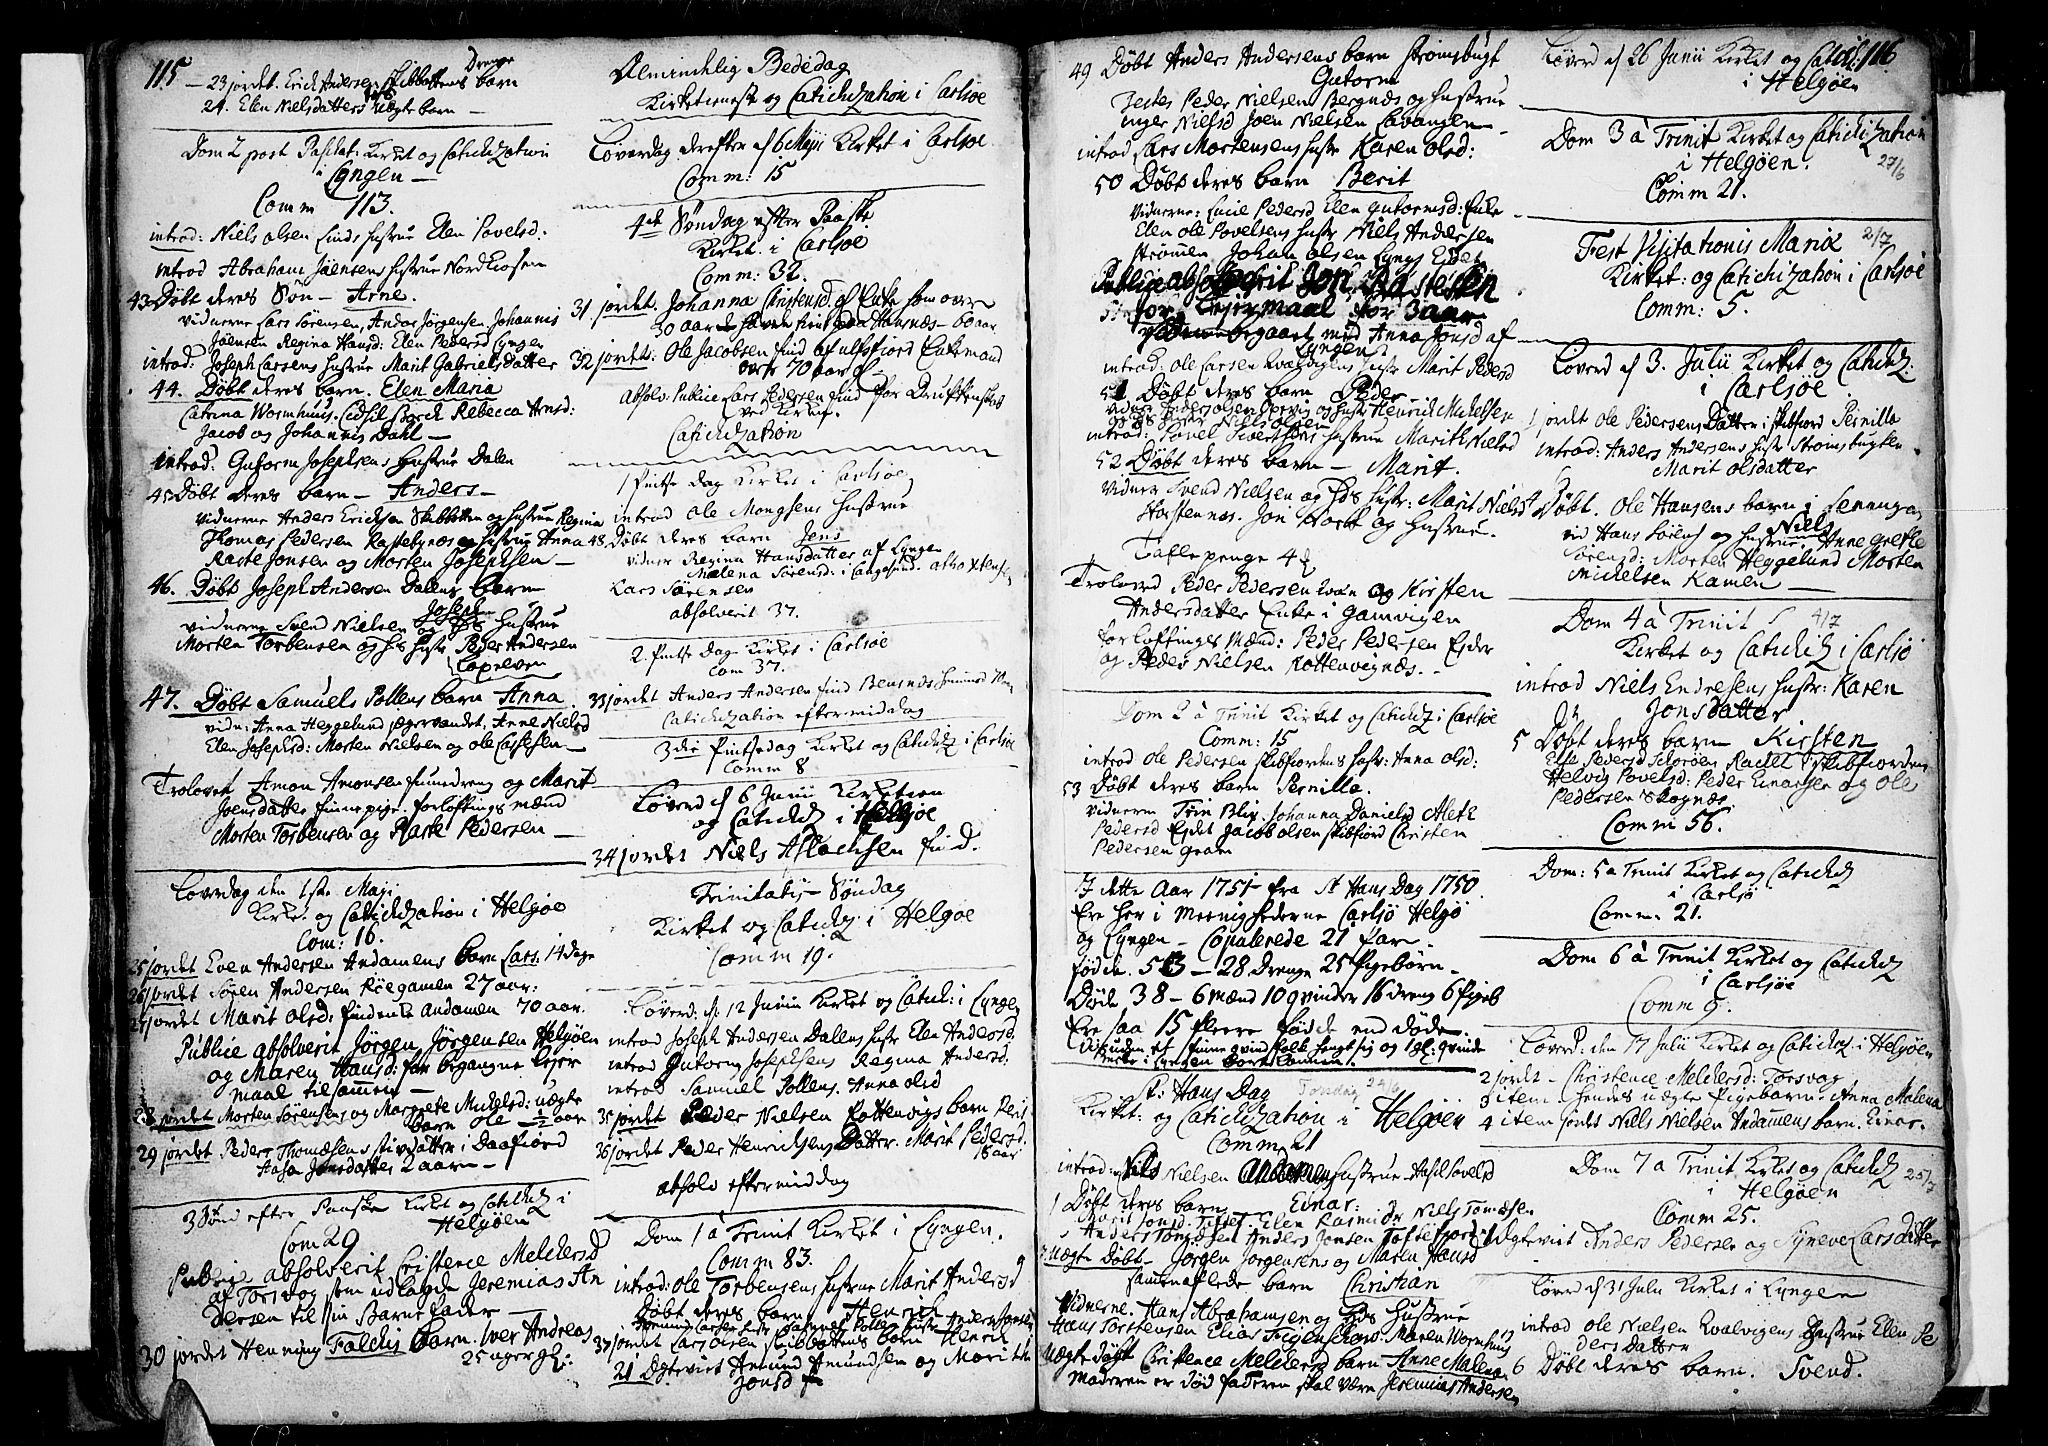 115
— 23 jordet. Erich Andersen Skibbottens barn
Drenge
24. Elen Nielsdatters uægte barn —
Dom 2 post Paschat: Kirket og Catichization
i Lyngen —
Comm 113.
introd: Niels Olsen Finds Hustrue Elen Povelsd:
introd Abraham Joensens Hustrue Nordkiosen
43 Døbt deres Søn — Arne.
Vidnerne Lars Sørensen, Anders Jørgensen, Johannis
Joensen Regina Hansd: Elen Pedersd Lyngen
introd: Joseph Larsens Hustrue Marit Gabrielsdatter
44. Døbt deres barn. Elen Maria
Catrina Wormhuus. Rebecca Arnsd:
Jacob og Johannis Dahl —
introd. Gutorm Josephsens Hustrue Dalen
45 Døbt deres barn — Anders —
Vidnerne Anders Erichsen Skibbotten og Hustrue Regina
Thomas Pedersen Rastebynæs og Hustrue Anna
Raste Jonsen og Morten Josephsen —
46. Døbt Joseph Andersen Dalens barn
Joseph
Vidnerne Svend Nielsen og Hds Hustrue
Morten Torbensen og Hs Hustr Peder Andersen
47. Døbt Samuels Pollens barn Anna
Vidn: Anna Heggelund Jægervandet, Anne Nielsd
Elen Josephsd: Morten Nielsen og Ole Larsen —
Trolovet Amon Amonsen finnedreng og Marit
Joensdatter finnepige. forlofnings mænd
Morten Torbensen og Raste Pedersen —
Løverdag den 1ste Maji
Kirket og Catichization i Helgøe
Com: 16.
25 jordet Even Andersen Andamens barn Lars. 14 dage
26 jordet Sören Andersen Röegamen 27 aar:
27 jordet Marit Olsd: Finde Enke Andamen 70 aar.
Publice absolverit Jørgen Jørgensen Helgøen
og Maren Hansd: for begangne Lejer
maal tilsammen —
28 jordet Morten Sørensens og Margrete Mickelsd: uægte
barn Ole — ½ aar
29 jordet Peder Thomæsens stivdatter i Daafiord
Aasa Jonsdatter 2 aar —
3 Sønd efter Paaske Kirket og Catichiz i
Helgøen
Com 29
Publice absolverit Cristence Melchersd
af Torsdog som udlagde Jeremias An
dersen til sin Barne fader —
30 jordet Henning Falchs barn. Iver Andreas
25 uger gl:
Almindelig Bededag
Kirketieneste og Catichization i Carlsøe
Løverdag derefter d 6 Maji Kirket i Carlsøe
Comm: 15
4de Søndag efter Paaske
Kirket. i Carlsøe
Comm: 32.
31 jordet. Johanna Christensd. gl Enke som over
30 aar har find paa Hansnæs — 60 aar
32 jordet: Ole Jacobsen find af Ulfsfiord Enkemand
over 70 aar gl —
absolv: Publice Lars Pedersen find for Drukkenskab
ved Kirken.
Catichization
1 Pintse dag Kirket i Carlsøe,
introd Ole Mongsens Hustrue
48. Døbt deres barn Jens
Vidner Regina Hansdatter af Lyngen
Malena Sørensd: i Langesund.
Lars Sörensen
absolverit 37.
2. Pintse Dag Kirket i Carlsøe
Com 37.
33 jordet Anders Andersen find Bensnæs
Catichization eftermiddag
3die Pintsedag Kirket og Catichiz i Carlsøe
Comm 8
Løverd d 6 Junii Kirketien
og Catichiz i Helgøe
34 jordet Niels Aslachsen find.
Trinitatis Søndag
Kirket og Catichiz i Helgøe
Comm 19.
Løverd: d. 12 Junii Kirket og Catich: i Lyngen
introd Joseph Andersen Dalens Hustr Elen Andersd:
introd Gutorm Josephsens Regina Andersd:
introd Samuel Pollens. Anna Olsd
35 jordet Peder Nielsen Rottenvigs barn
36 jordet Peder Henrichsens Datter. Marit Pedersd.
18 aar
absolv eftermiddag
Dom 1 à Trinit Kirket i Lyngen.
Comm 83.
introd: Ole Torbensens Hustrue Marit Andersd
Døbt deres barn Henrich
37 jordet Lars Olsens Skibbottens barn Henrik
21 Ægteviet Amund Amundsen og Marith
Jonsd
49 Døbt Anders Andersens barn Strømsbugt
Gutorm
Testes Peder Nielsen Bergnæs og Hustrue
Inger Nielsd Joen Nielsen Lavangen —
introd Lars Mortensens Hustr Karen Olsd:
50 Døbt deres barn Berit
Vidnerne: Lucie Pedersd Elen Gutormsd: Enke
Elen Ole Povelsens Hustr Niels Andersen
Strømmen Johan Olsen Lyngs Eidet
Publice absolverit Jon Rastesen
for Lejermaal for 3 aar
begaaet med Anna Jonsd af
Lyngen
introd: Ole Larsen Kvalvigens Hustr Marit Pedersd
51 Døbt deres barn Peder
Vidner Anders Olsen og Hustr Henrich Mickelsen
Niels Olsen
introd: Povel Hustrue Marith Nielsd
52 Døbt deres barn — Marit.
Vidner Svend Nielsen og Hds Hustr: Marit Nielsd
Storstennæs. Jon Nort og Hustrue.
Taffle penge 4
Troloved Peder Pedersen og Kirsten
Andersdatter Enke i Gamvigen
forlofnings Mænd: Peder Pedersen Eider
og Peder Nielsen Rottenvegnæs. —
Dom 2 à Trinit Kirket og Catichiz i Carlsøe
Comm: 15
introd Ole Pedersen Skibfiordens Hustr: Anna Olsd:
53 Døbt deres barn Pernilla.
Vidnerne Trin Blix. Johanna Danielsd Alethe
Pedersd Eidet Jacob Olsen Skibfiord Christen
Pedersen Graae
I dette Aar 1751 fra St Hans Dag 1750
Ere her i Meenighederne Carlsø Helgø
og Lyngen — Copulerede 21 Par.
fødde. 53 — 28 Drenge 25 Pigebørn —
Døde 38 — 6 mænd 10 qvinder 16 dreng 6 Pigeb
Ere saa 15 fleere fødde end døde.
Desuden et finne qvind folk hengt sig og 1 gl: qvinde
i Lyngen bortkommen.
St: Hans Dag Torsdag 24/6
Kirket: og Catichization i Helgøen
Comm 21
introd: Niels Nielsen Andamens Hustrue Povelsd
1 Døbt deres barn Einar:
Marit Jonsd: Toftef. Elen Rasmisdr Niels Tomæsen
Anders Tomæsen Anders Jonsen Toftefiord
2 Uægte Døbt — Jørgen Jørgensens og Maren Hansd
sammenaflede barn Christian
Vidnerne. Hans Abrahamsen og Hds Hustrue
Hans Torstensen Elias Figenschow. Maren Wormhuus
3 Uægte døbt Cristence Melchersd barn Anne Malena
Moderen er død faderen skal være Jeremias Andersen
Løverd d 26 Junii Kirket og Catich: 116
i Helgøen
Dom 3 à Trinit Kirket og Catichization
i Helgøen. 27/6
Comm 21.
Fest Visitationis Mariæ 2/7
Kirket: og Catichization i Carlsøe
Comm: 5.
Løverd d 3. Julii Kirket og Catichiz:
i Carlsøe
1 jordet Ole Pedersens Datter i Skibfiord Pernilla
introd: Anders Andersens Hustr Strømsbugten
Marit Olsdatter
4 Døbt. Ole Hansens barn i Lenvngen
Niels
vid Hans Sørens og Hustrue. Anne Grethe
Sørensd: Morten Heggelund Morten
Mickelsen Kamen —
Dom 4 à Trinit 4/7
Kirket og Catichiz i Carlsø
introd Niels Endresens Hustr: Karen
Jonsdatter
5 Døbt deres barn Kirsten
Else Pedersd Scorøen Rachel Skibfiorden
Helvig Povelsd: Peder Einarsen og Ole
Pedersen Skognæs
Comm 56.
Dom: 5 à Trinit Kirket og Catichiz
i Carlsö
Comm: 21.
Dom 6 à Trinit Kirket og Catichiz
i Carlsöe
Comm 9.
Løverd: den 17 Julii Kirket og Catichiz i Helgøen
2 jordet — Christence Melchersd: Torsvog
3 item — hendes uægte Pigebarn: Anna Malena
4 item jordet Niels Nielsen Andamens barn. Einar.
Dom 7 a Trinit Kirket og Catichiz 25/7
i Helgøen
Comm 25.
Ægteviet Anders Pedersen og Syneve Larsdatter
Løverd d 31 Julii Kirket i Lyngen
introd Ole Nielsen Kvalvigens Hustrue Elen Pe
dersdatter
6 Døbt deres barn. Svend.